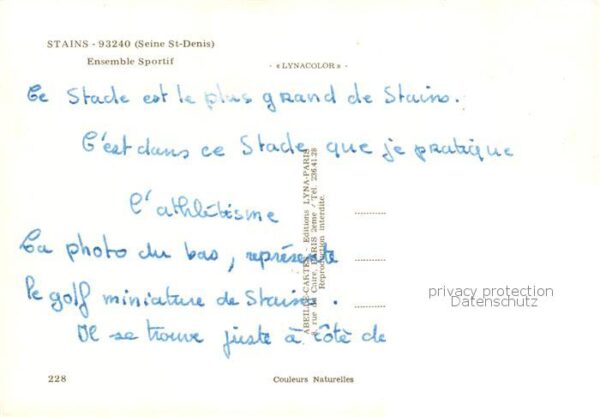 STAINS - 93240 (Seine St-Denis)
Ensemble Sportif
- «LYNACOLOR» -
Ce Stade est le plus grand de Stains.
C'est dans ce Stade que je pratique
l'athlétisme
La photo du bas, représente
le golf miniature de Stains.
Il se trouve juste à côté de
ABEILLE-CARTES - Editions LYNA-PARIS
8, rue du Caire, PARIS 2eme / Tél. 236.41.28
Reproduction interdite.
privacy protection
Datenschutz
228
Couleurs Naturelles